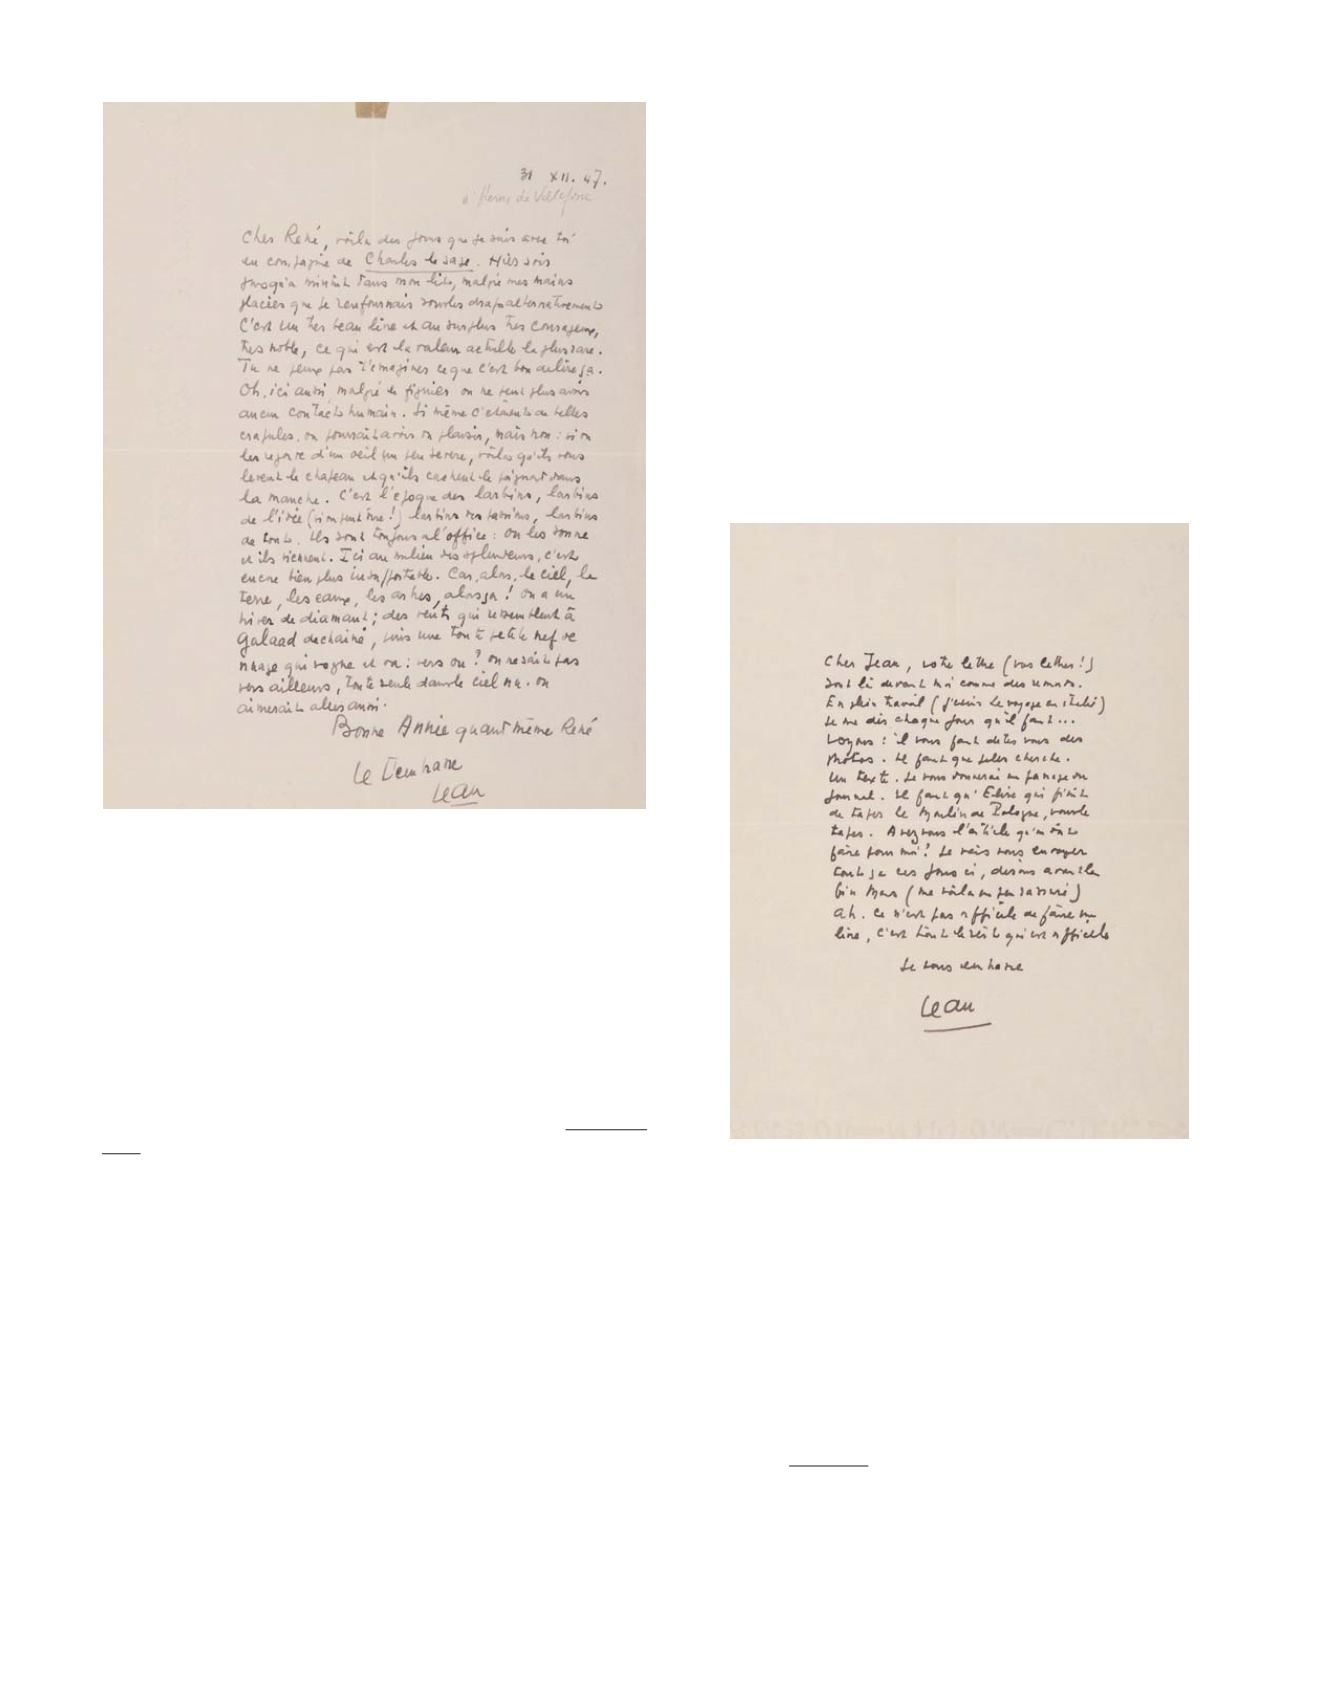 31 XII. 47.
Cher René, voilà des jours que je suis avec toi
en compagnie de Charles le sage. Hier soir
jusqu'à minuit dans mon lit, malgré mes mains
glacées que je renfournais sous les draps alternativement
C'est un très beau livre et au surplus très courageux,
très noble, ce qui est la valeur actuelle la plus rare.
Tu ne peux pas t'imaginer ce que c'est bon de lire ça.
Oh, ici aussi, malgré les figuiers on ne peut plus avoir
aucun contact humain. Si même c'étaient de belles
crapules, on pourrait avoir du plaisir, mais non : si on
les regarde d'un oeil un peu sévère, voilà qu'ils vous
lèvent le chapeau et qu'ils cachent le poignard dans
la manche. C'est l'époque des larbins, larbins
de l'idée (si on peut dire !) larbins des passions, larbins
de tout. Ils sont toujours à l'office : on les sonne
et ils viennent. Ici au milieu des splendeurs, c'est
encore bien plus insupportable. Car, alors, le ciel, la
terre, les eaux, les arbres, alors ça ! on a un
hiver de diamant ; des vents qui ressemblent à
Galaad déchaîné, puis une toute petite nef de
nuage qui vogne et va : vers où ? on ne sait pas
vers ailleurs, toute seule dans le ciel nu. on
aimerait aller aussi.
Bonne Année quand même René
Je t'embrasse
Jean
Cher Jean, votre lettre (vos lettres !)
sont là devant moi comme des remords.
En plein travail (j'écris le voyage en Italie)
Je me dis chaque jour qu'il faut...
Voyons : il vous faut dites vous des
photos. Il faut que je les cherche.
Un texte. Je vous donnerai un passage du
Journal. Il faut qu'Elise qui finit
de taper le Moulin de Pologne, vous le
tape. Avez vous l'article qu'on doit
faire pour moi ? Je vais vous envoyer
tout ça ces jours ci, disons avant la
fin Mars (me voilà un peu rassuré)
Ah. Ce n'est pas difficile de faire un
livre, c'est tout le reste qui est difficile
Je vous embrasse
Jean